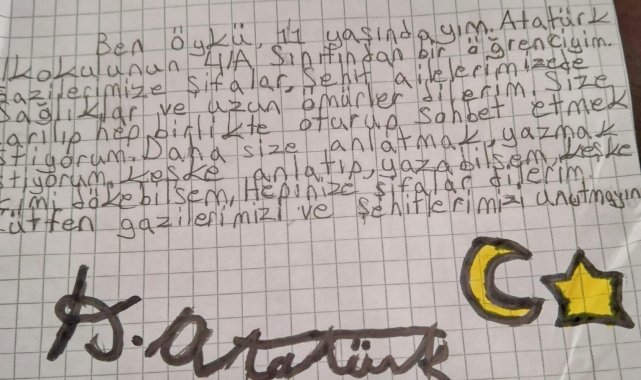 Ben öykü, 11 yaşındayım. Atatürk
İlkokulunun 4/A Sınıfından bir öğrenciyim.
Gazilerimize şifalar, Şehit ailelerimizede
Sağlıklar ve uzun ömürler dilerim. Size
sarılıp hep birlikte oturup Sohbet etmek
istiyorum. Daha size anlatmak, yazmak
istiyorum. Keşke anlatıp, yazabilsem, keşke
içimi dökebilsem, Hepinize şifalar dilerim.
Lütfen gazilerimizi ve Şehitlerimizi unutmayın
K. Atatürk